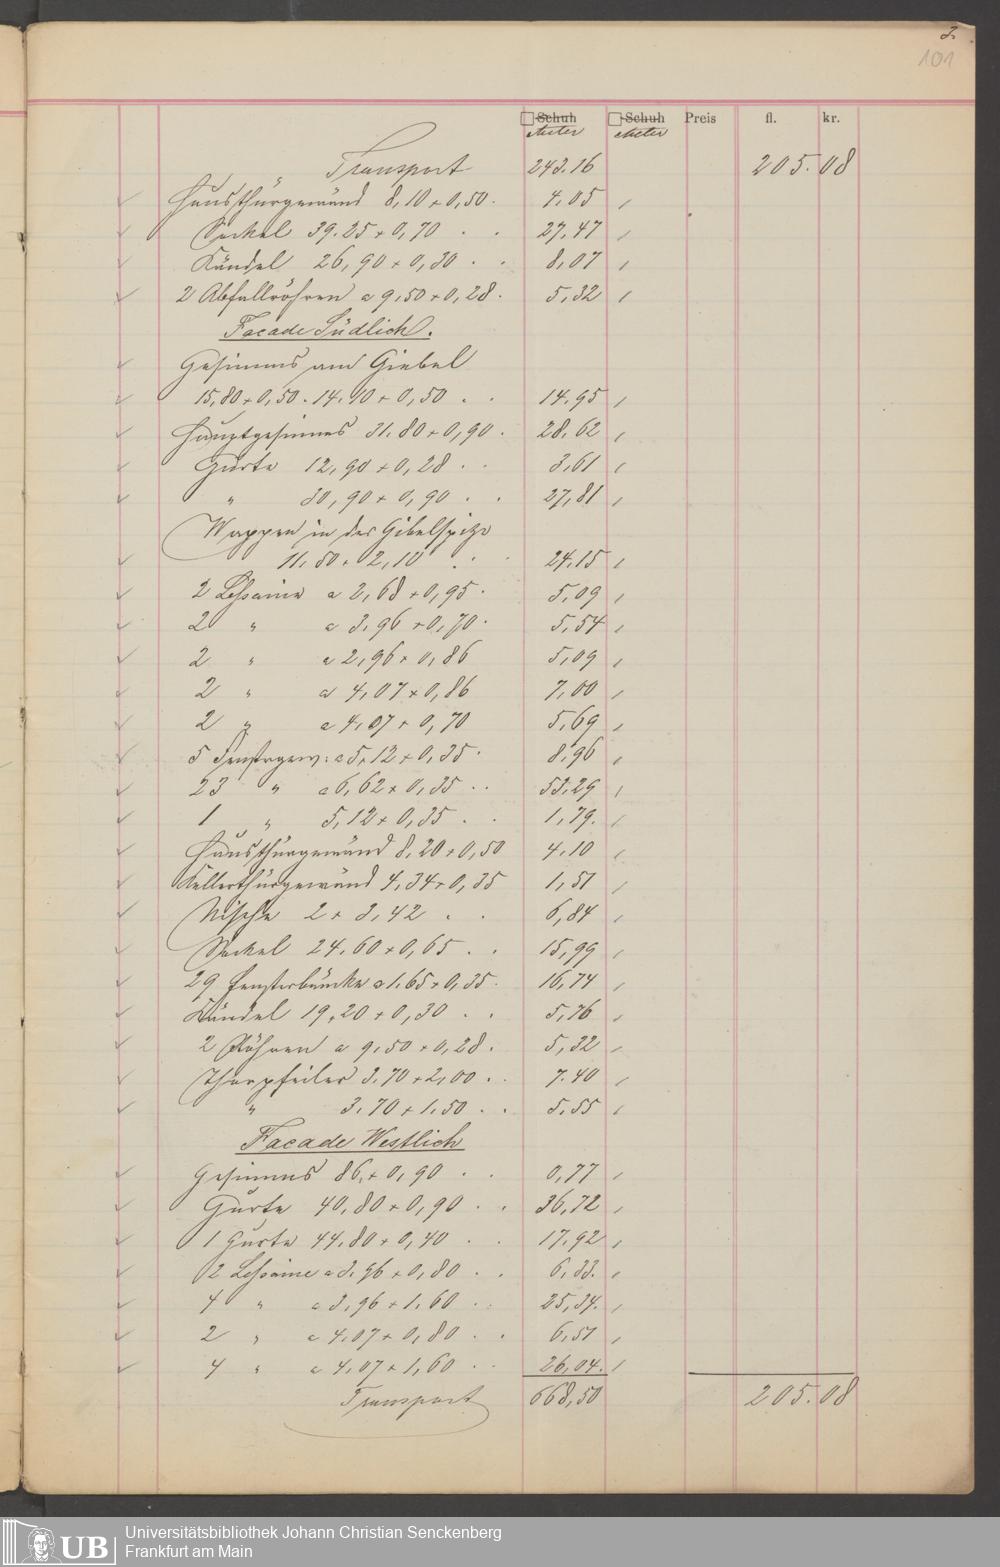 3.
101
□ Schuh □ Schuh Preis fl. kr.
Meter Meter
Transport 243.16 205.08
Hausthürgewänd 8,10 + 0,50. 4.05
Sockel 39.25 + 0,70 . . 27.47
Kändel 26,90 + 0,30 . . 8,07
2 Abfallröhren a 9,50 + 0,28. 5,32
Facade Südlich.
Gesimms am Giebel
15,80 + 0,50. 14.10 + 0,50 . . 14.95
Hauptgesimms 31.80 + 0,90. 28.62
Gurte 12,90 + 0,28 . . 3,61
" 30,90 + 0,90 . . 27,81
Wappen in der Gibelspitze
11.50 + 2,10 . . 24.15
2 Lessaine a 2,68 + 0,95. 5,09
2 " a 3.96 + 0,70. 5.54
2 " a 2,96 + 0,86 5,09
2 " a 4,07 + 0,86 7,00
2 " a 4,07 + 0,70 5,69
5 Fenstergew: a 5,12 + 0,35. 8.96
23 " a 6,62 + 0,35 . . 53.29
1 " 5,12 + 0,35 . . 1,79.
Hausthürgewänd 8,20 + 0,50 4.10
Kellerthürgewänd 4,34 + 0,35 1,51
Nische 2 + 3,42 . . 6,84
Sockel 24.60 + 0,65 . . 15,99
29 Fensterbänke a 1,65 + 0,35. 16,74
Kändel 19,20 + 0,30 . . 5,76
2 Röhren a 9,50 + 0,28. 5,32
Thorpfeiler 3.70 + 2,00 . . 7.40
" 3.70 + 1.50 . . 5,55
Facade Westlich
Gesimms 86, + 0,90 . . 0,77
Gurte 40,80 + 0,90 . . 36,72
1 Gurte 44.80 + 0,40 . . 17.92
2 Lessaine a 3.96 + 0,80 . . 6,33.
4 " a 3,96 + 1.60 . . 25,34.
2 " a 4,07 + 0,80 . . 6,51
4 " a 4,07 + 1,60 . . 26,04.
Transport 668,50 205.08
UB
Universitätsbibliothek Johann Christian Senckenberg
Frankfurt am Main